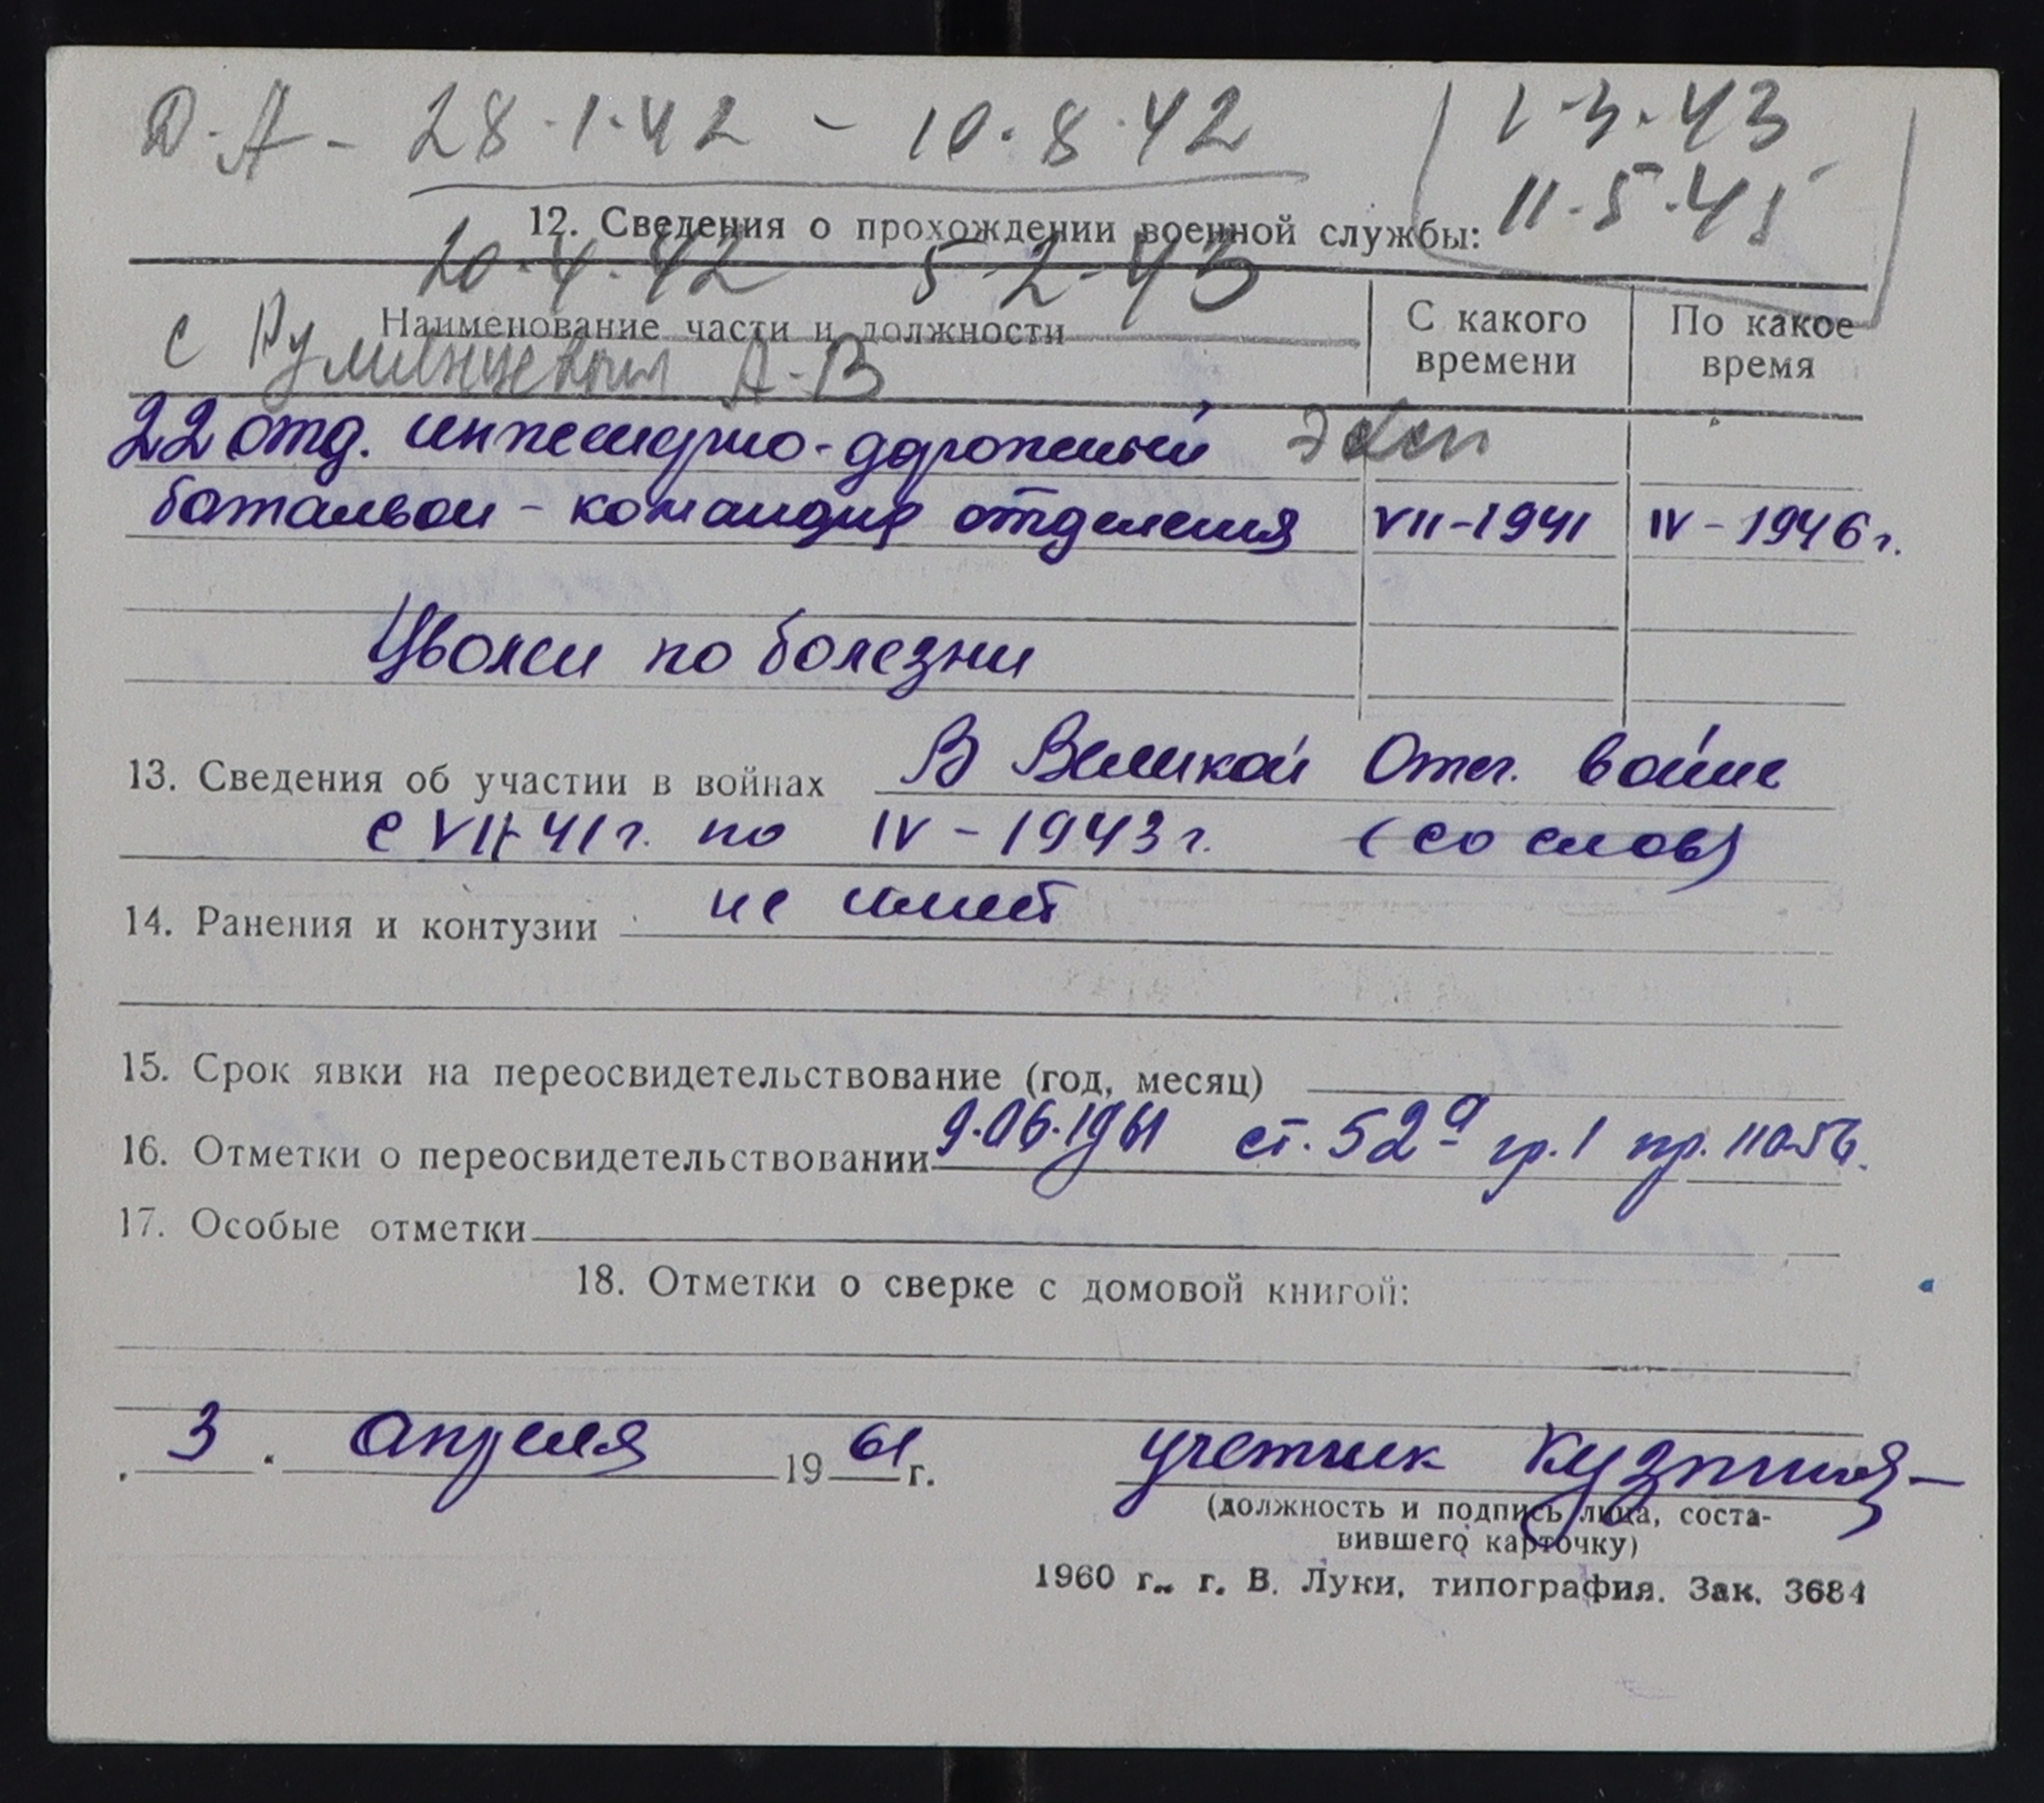 Д.А - 28.1.42 - 10.8.42
1-3.43
11.5.45
12. Сведения о прохождении военной службы:
20.4.42 5-2-43
Наименование части и должности
С какого времени
По какое время
с Румянцевым А-В
22 отд. инженерно-дорожный
батальон - командир отделения VII-1941 IV-1946 г.
Уволен по болезни
13. Сведения об участии в войнах В Великой Отеч. войне
с VII-41 г. по IV-1943 г. (со слов)
14. Ранения и контузии не имеет
15. Срок явки на переосвидетельствование (год, месяц)
16. Отметки о переосвидетельствовании 9.06.1961 ст. 52а гр.1 пр. 110-56.
17. Особые отметки
18. Отметки о сверке с домовой книгой:
3. апреля 1961 г. учетчик
(должность и подпись лица, соста-
вившего карточку)
1960 г., г. В. Луки, типография. Зак. 3684